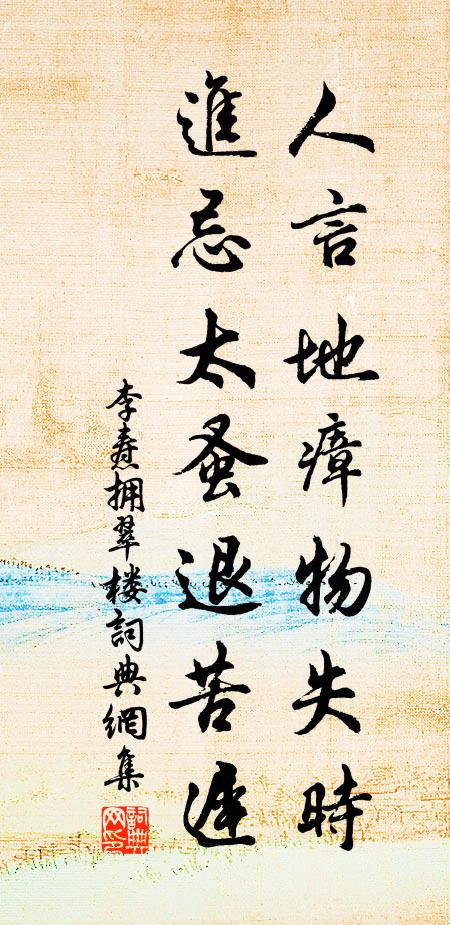 人言地瘴物失時
進忌太蚤退苦遲
李焘拥翠楼詞典網集
詞典网印